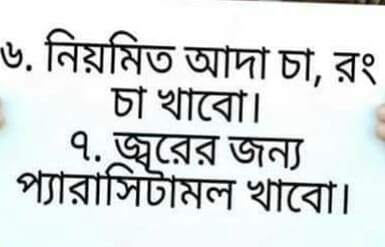 ৬. নিয়মিত আদা চা, রং
চা খাবো।
৭. জ্বরের জন্য
প্যারাসিটামল খাবো।